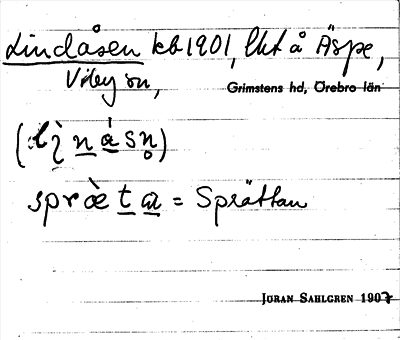 Lindåsen kb 1901, lht å Äspe,
Viby sn,
Grimstens hd, Örebro län
(lìnåsn̥)
spræ̀ta = Sprättan
JÖRAN SAHLGREN 1907